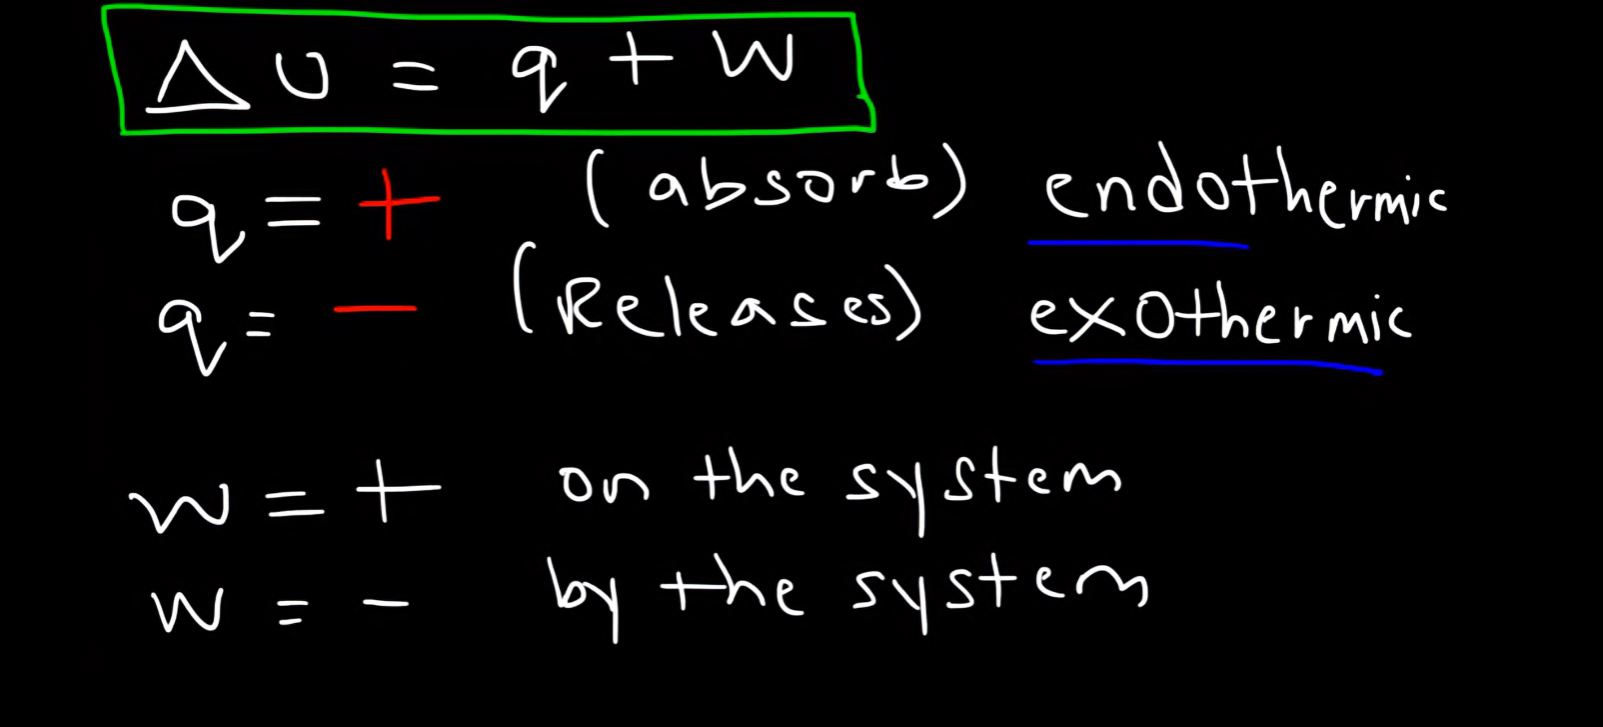 ΔU = q + W
q = + (absorb) endothermic
q = − (Releases) exothermic
w = + on the system
w = − by the system